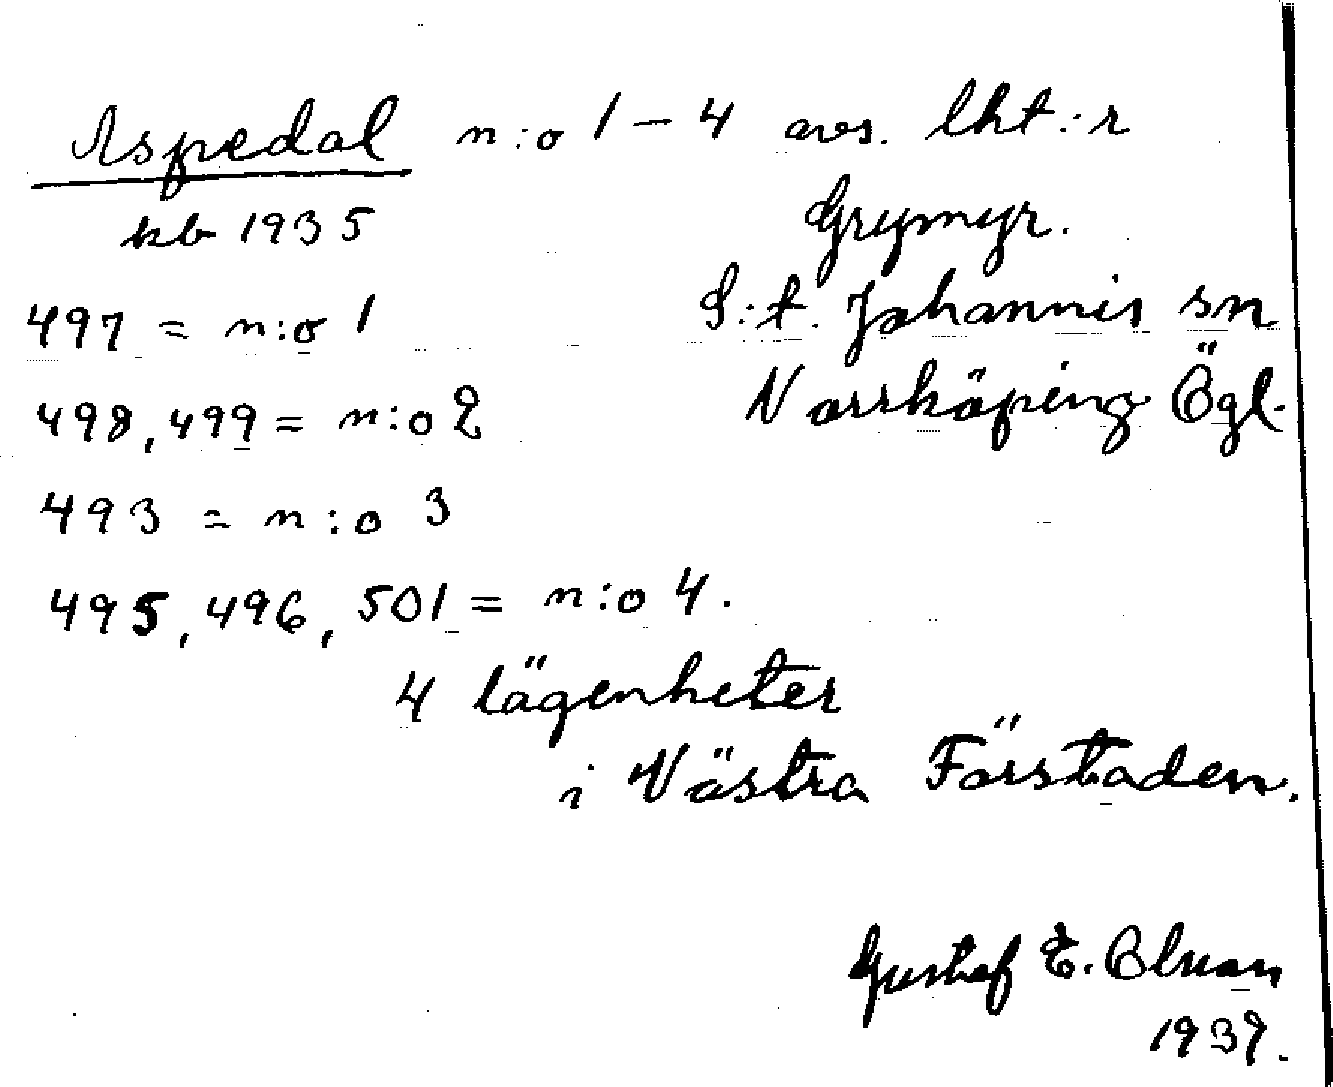 Aspedal n:o 1-4 avs. lht.:r
kb 1935 Grymyr.
497 = n:o 1 S:t. Johannis sn
498, 499 = n:o 2 Norrköping Ögl.
493 = n:o 3
495, 496, 501 = n:o 4.
4 lägenheter
i Västra Förstaden.
Gustaf E. Olsson
1939.